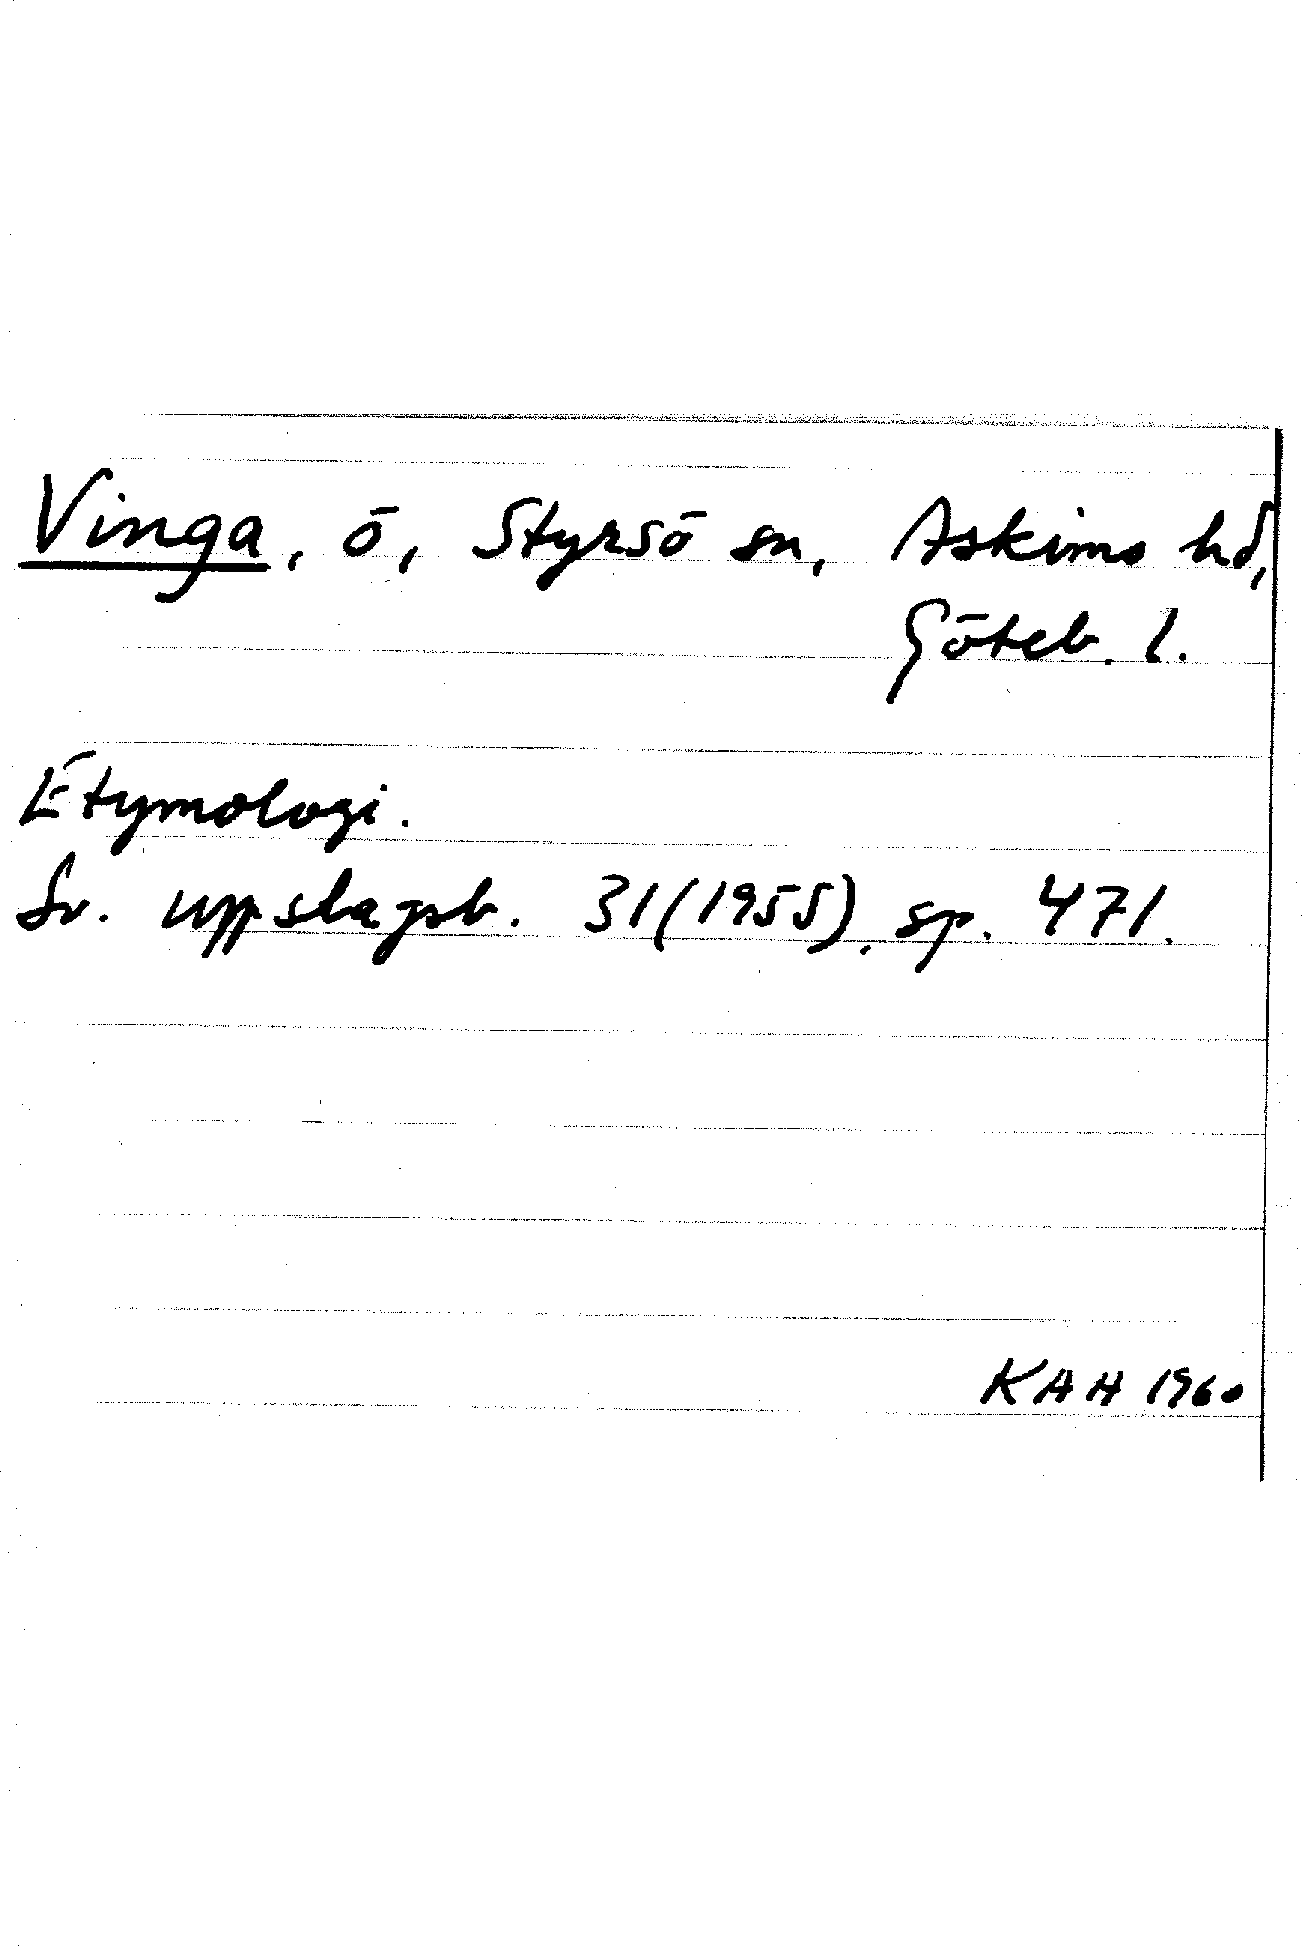 Vinga, ö, Styrsö sn, Askims hd,
Göteb. l.
Etymologi.
Sv. uppslagsb. 31(1955), sp. 471.
KAH 1960